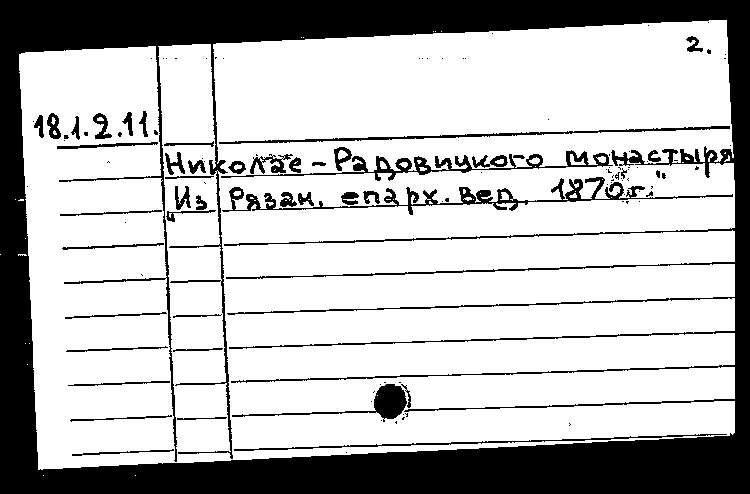 2.
18.1.2.11.
Николае-Радовицкого монастыря
"Из Рязан. епарх. вед. 1870г."